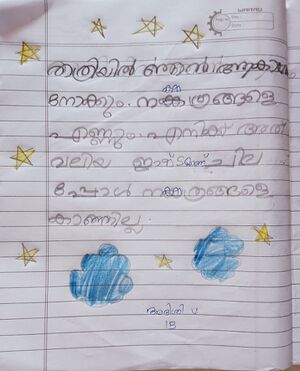 രാത്രിയിൽ ഞാൻ ആകാശം
നോക്കും. നക്ഷത്രങ്ങളെ
എണ്ണും. എനിക്ക് അത്
വലിയ ഇഷ്ടമാണ്. ചില
പ്പോൾ നക്ഷത്രങ്ങളെ
കാണില്ല.
അദിതി v
1B